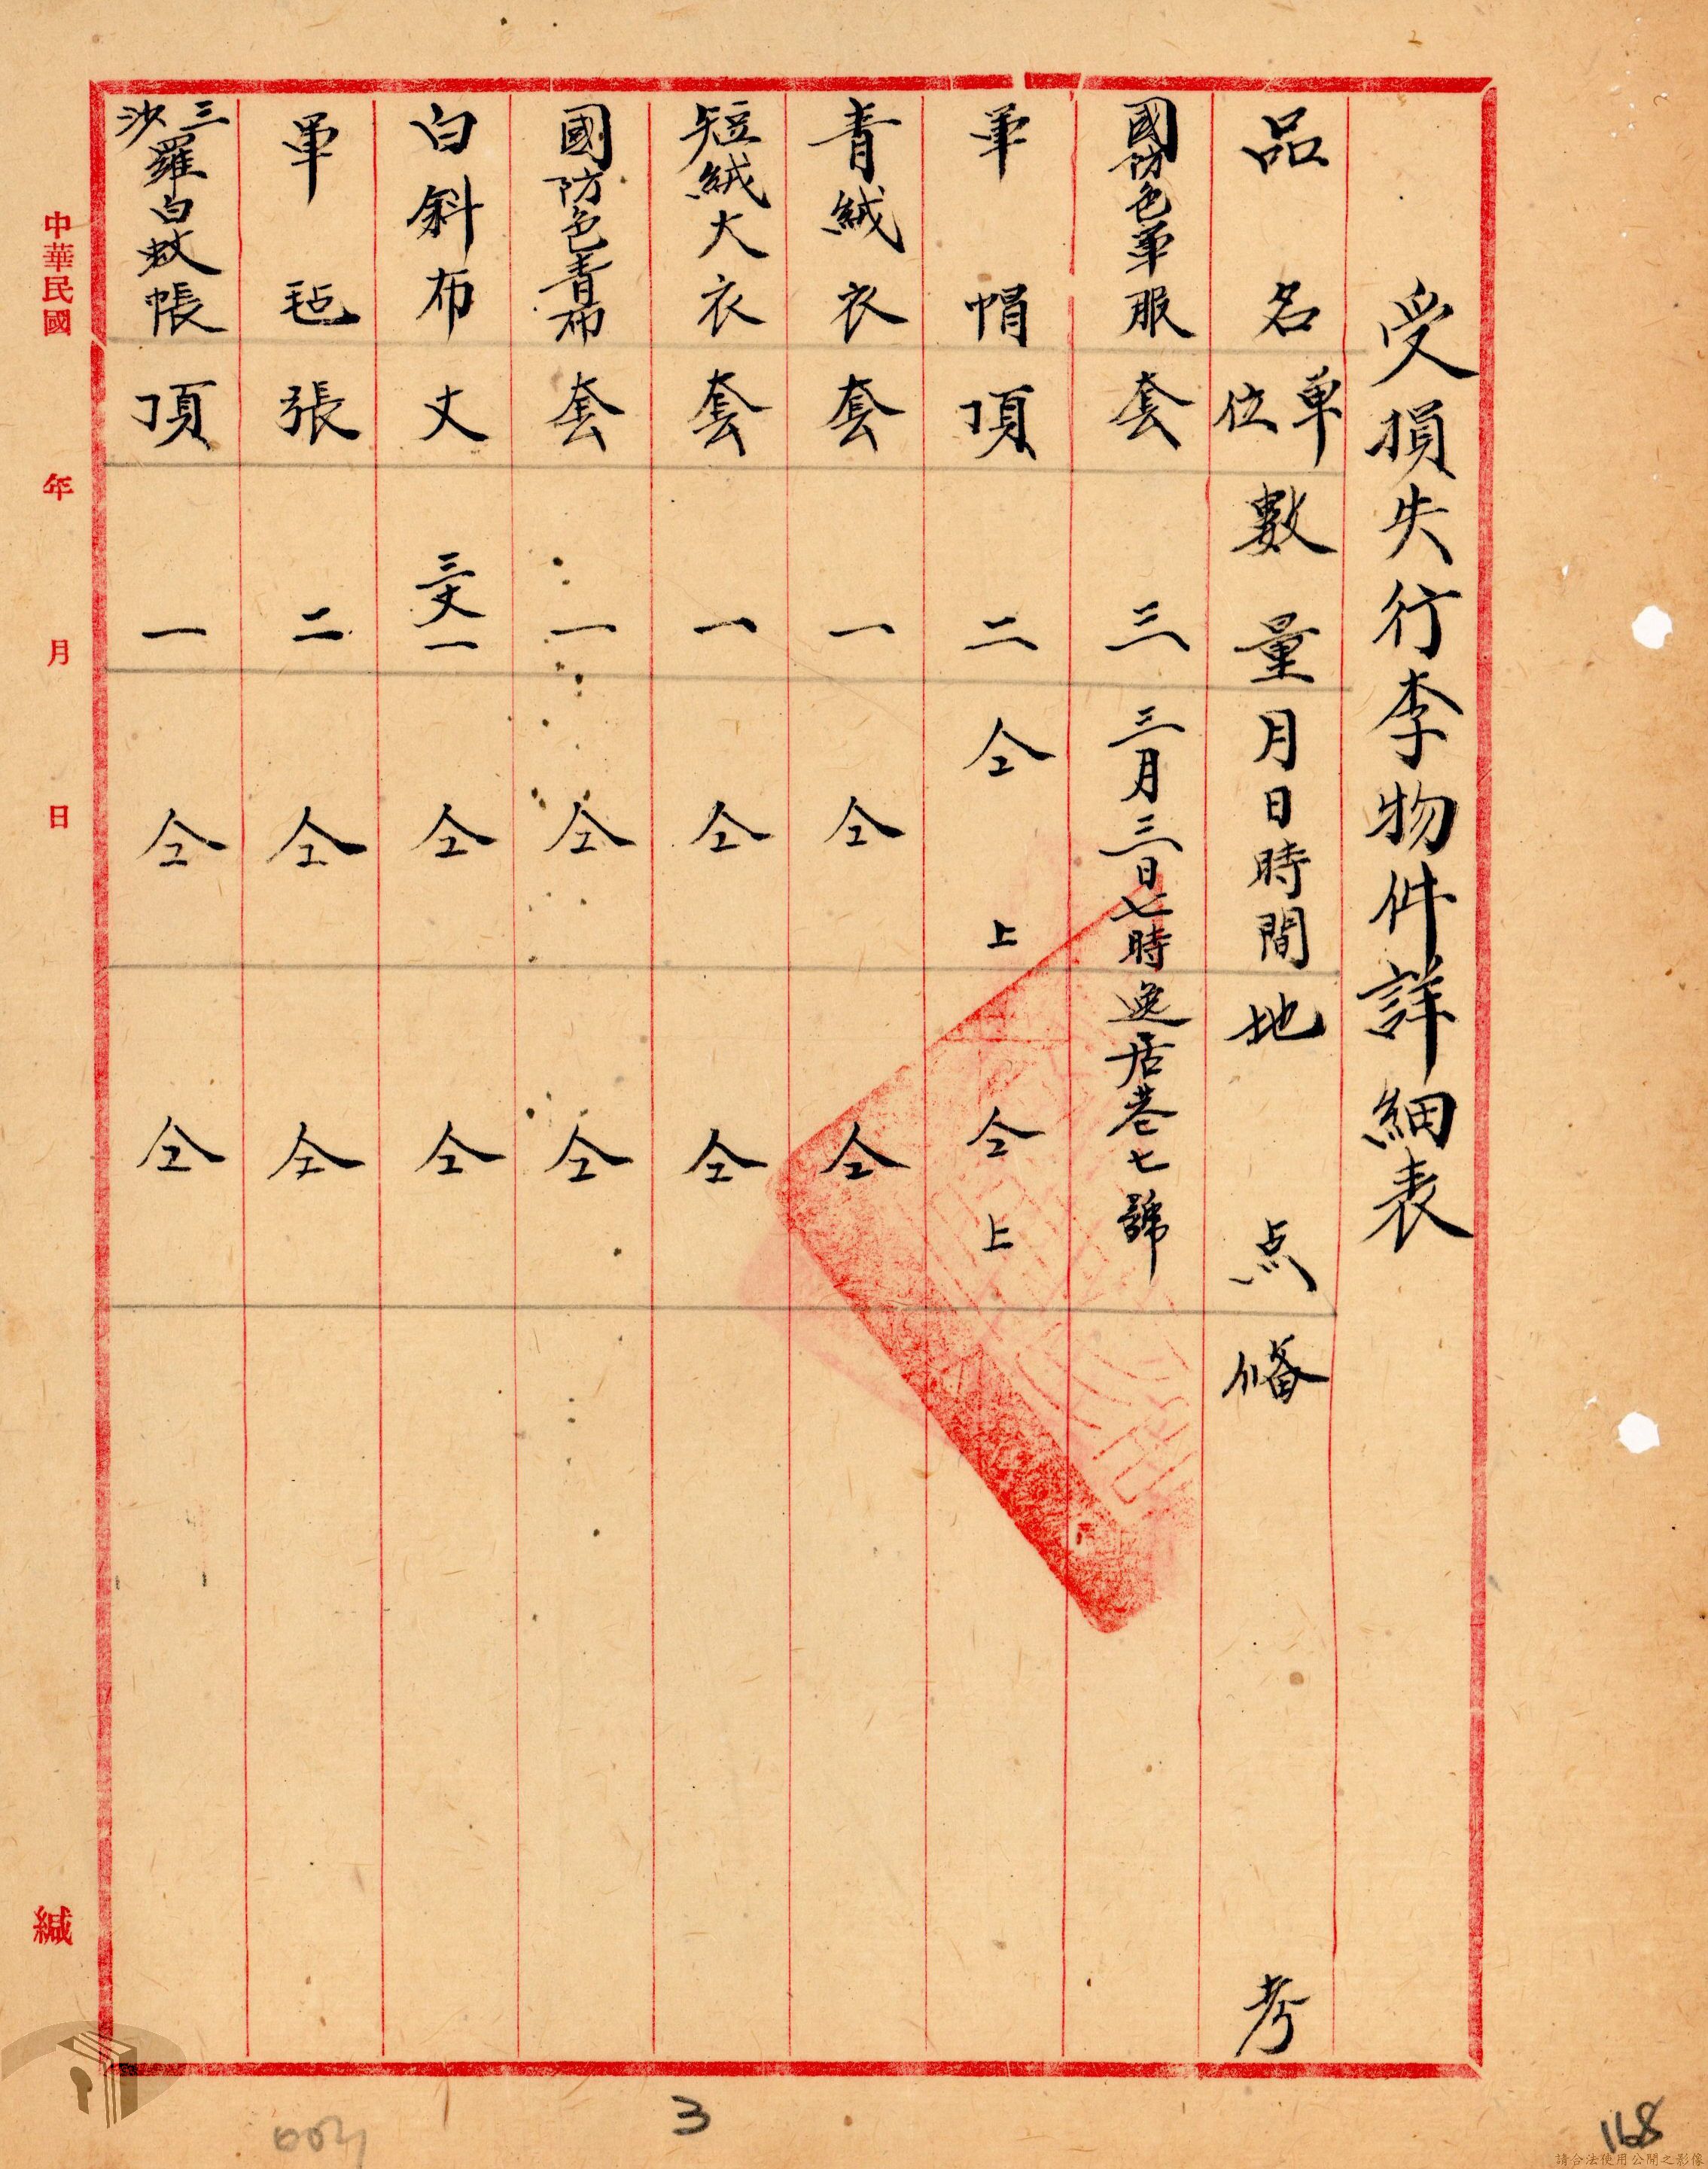 受損失行李物件詳細表
品名 單位 數量 月日時間 地点 俻考
國防色軍服 套 三 三月三日七時 逸居巷七號
軍帽 項 二 仝上 仝上
青絨衣 套 一 仝 仝
短絨大衣 套 一 仝 仝
國防色青布 套 一 仝 仝
白斜布 丈 三丈一 仝 仝
軍毡 張 二 仝 仝
三沙羅白蚊帳 項 一 仝 仝
中華民國 年 月 日 緘
3
168
請合法使用公開之影像